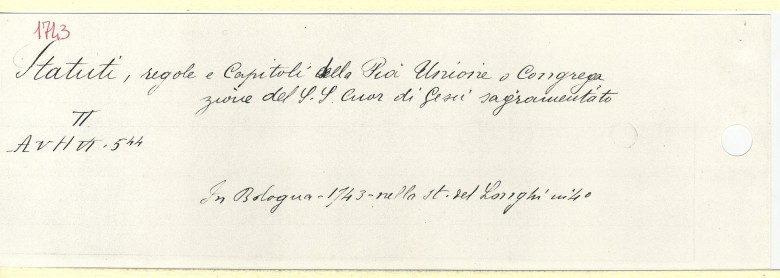 1743
Statuti, regole e Capitoli della Pia Unione o Congrega
zione del S.S. Cuor di Gesù sagramentato
II
A V H VI. 544
In Bologna - 1743 - nella st. del Longhi in 4o